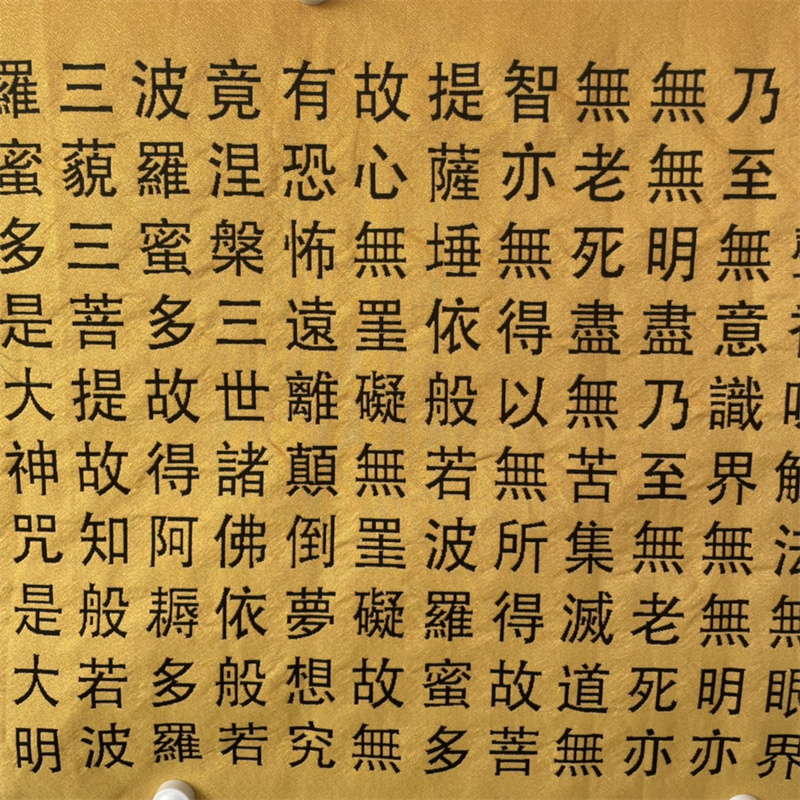 法無眼界
乃至無意識界無無明亦
無無明盡乃至無老死亦
無老死盡無苦集滅道無
智亦無得以無所得故菩
提薩埵依般若波羅蜜多
故心無罣礙無罣礙故無
有恐怖遠離顛倒夢想究
竟涅槃三世諸佛依般若
波羅蜜多故得阿耨多羅
三藐三菩提故知般若波
羅蜜多是大神咒是大明